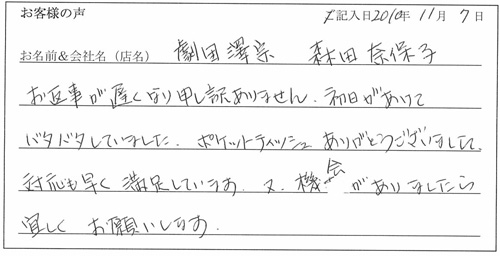 お客様の声 〆記入日2010年 11月 7日
お名前&会社名（店名） 劇団澤宗 森田奈保子
お返事が遅くなり申し訳ありません。初日があけて
バタバタしていました。ポケットティッシュ ありがとうございました。
対応も早く 満足しています。又、機会がありましたら
宜しく お願いします。